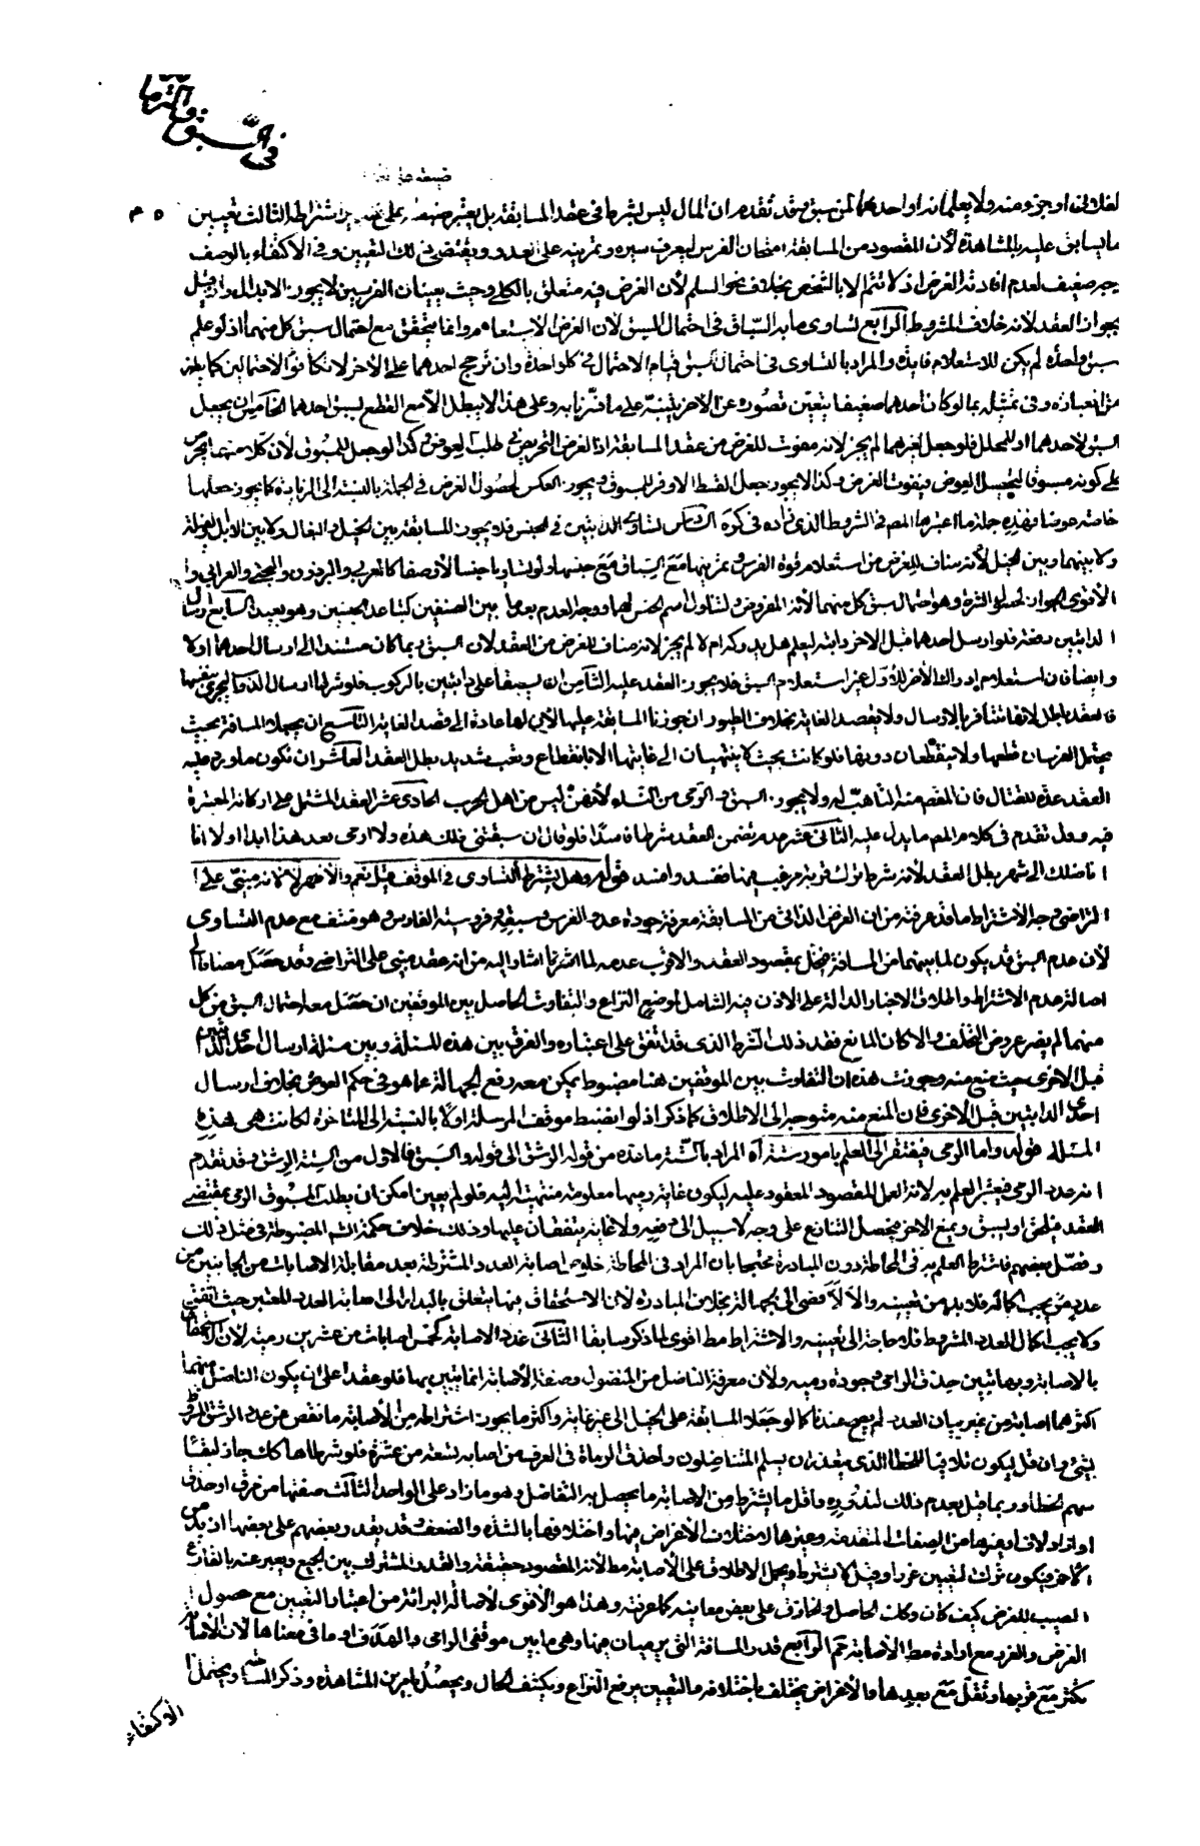 في السبق والرما
لفلان او جزء منه ولا يعلمانه او احدهما لمن سبق وقد تقدم ان المال ليس شرطا في عقد المسابقة بل يعتبر ضبطه على تقدير اشتراطه الثالث تعيين
ما يسابق عليه بالمشاهدة لأن المقصود من المسابقة امتحان الفرس ليعرف سيره وتمرينه على العدو ويقتضي ذلك التعيين وفي الاكتفاء بالوصف
وجه ضعيف لعدم افادته الغرض اذ لا تتم الا بالشخص بخلاف نحو السلم لأن الغرض فيه متعلق بالكلي وحيث يعينان الفرسين لا يجوز الابدال وان قيل
بجواز العقد لأنه خلاف المشروط الرابع تساوى ما به السباق في احتمال السبق لان الغرض الاستعلام وانما يتحقق مع احتمال سبق كل منهما اذ لو علم
سبق واحد لم يكن للاستعلام فايدة والمراد بالتساوى في احتمال السبق قيام الاحتمال في كل واحد وان ترجح احدهما على الاخر لا تكافؤ الاحتمالين كما يظهر
من العبارة وفي تمثيله بما لو كان احدهما ضعيفا يتعين قصوره عن الاخر تنبيه على ما قررنا به وعلى هذا لا يبطل الا مع القطع بسبق احدهما الخامس ان يجعل
السبق لاحدهما او للمحلل فلو جعل لغيرهما لم يجز لانه مفوت للغرض من عقد المسابقة اذ الغرض التحريض في طلب العوض وكذا لو جعل للمسبوق لأن كلا منهما يحرص
على كونه مسبوقا لتحصيل العوض فيفوت الغرض وكذا لا يجوز جعل القسط الاوفر للمسبوق ويجوز العكس لحصول الغرض في الجملة بالنسبة الى الزيادة كما يجوز جعلها
خاصة عوضا فهذه جملة ما اعتبره المصر في الشروط الذي زاده في كره السادس تساوي الدابتين في الجنس فلا يجوز المسابقة بين الخيل والبغال ولا بين الابل والفيلة
ولا بينهما وبين الخيل لأنه مناف للغرض من استعلام قوة الفرس وتمرينها مع السباق مع جنسها ولو تساويا جنسا لا وصفا كالعربي والبرذون والبختي والعرابي فا
الأقوى الجواز لحصول الثمرة وهو احتمال سبق كل منهما لأنه المفروض ولتناول اسم الجنس لهما ووجه العدم بعد ما بين الصنفين كتباعد الجنسين وهو بعيد السابع ارسال
الدابتين دفعة فلو ارسل احدهما قبل الاخر دابته ليعلم هل يدركه ام لا لم يجز لانه مناف للغرض من العقد لان السبق ربما كان مستندا الى ارسال احدهما اولا
وايضا فان استعلام ادراك الأخر للأول غير استعلام السبق فلا يجوز العقد عليه الثامن ان يسبقا على دابتين بالركوب فلو شرطا ارسال الدواب لتجري بنفسها
فالعقد باطل لانها تتنافر بالارسال ولا تقصد الغاية بخلاف الطيور ان جوزنا المسابقة عليها لأن لها عادة الى قصد الغاية التاسع ان يجعلا المسافة بحيث
يحتمل الفرسان قطعها ولا ينقطعان دونها فلو كانت بحيث لا ينتهيان الى غايتها الا بانقطاع وتعب شديد بطل العقد العاشر ان تكون ما ورد عليه
العقد عدة للقتال فان المقصد منه التأهب له ولا يجوز السبق والرمي من النساء لأنهن ليس من اهل الحرب الحادي عشر العقد المشتمل على اركانه المعتبرة
فيه وقد تقدم في كلام المصر ما يدل عليه الثاني عشر عدم تضمن العقد شرطا فاسدا فلو قال ان سبقتني فلك هذه ولا ارمي بعد هذا ابدا او لا انا
ا ناضلك الى شهر بطل العقد لأنه شرط ترك قربة مرغب فيها ففسد وافسد قوله وهل يشترط التساوى في الموقف قيل نعم والأظهر لا لانه مبني على ا
التراضي وجه الأشتراط ما قد عرفته من ان الغرض الذاتي من المسابقة معرفة جودة عدو الفرس وسبقه وفروسية الفارس وهو منتف مع عدم التساوي
لأن عدم السبق قد يكون لما بينهما من المسافة فيخل بمقصود العقد والاقرب عدمه لما اشرنا اشار اليه من انه عقد مبني على التراضي وقد حصل مضافا الى
اصالة عدم الاشتراط واطلاق الاخبار الدالة على الاذن فيه الشامل لموضع النزاع والتفاوت الحاصل بين الموقفين ان حصل معه احتمال السبق من كل
منهما لم يضر عروض التخلف والا كان المانع فقد ذلك الشرط الذى قد اتفق على اعتباره والفرق بين هذه المسئلة وبين مسئلة ارسال احدى الدابتين
قبل الاخرى حيث منع منه وجوزت هذه ان التفاوت بين الموقفين هنا مضبوط يمكن معه رفع الجهالة عما هو في حكم العوض بخلاف ارسال
احدى الدابتين قبل الاخرى فان المنع منه متوجه الى الاطلاق كما ذكر اذ لو انضبط موقف المرسلة اولا بالنسبة الى المتاخرة لكانت هي هذه
المسئلة قوله واما الرمي فيفتقر الى العلم بامور ستة آه المراد بالستة ما عده من قوله الرشق الى قوله والسبق فالاول من الستة الرشق وقد تقدم
انه عدد الرمي فيشترط العلم به لانه العمل المقصود المعقود عليه ليكون غاية رميهما معلومة منتهية اليه فلو لم يعين امكن ان يطلب المسبوق الرمي بمقتضى
العقد فيلحق او يسبق ويمنع الاخر فيحصل التنازع على وجه لا سبيل الى رفعه ولا غاية يتفقان عليها وذلك خلاف حكمة الش المضبوطة في مثل ذلك
وفصل بعضهم فاشترط العلم به في المحاطة دون المبادرة محتجا بان المراد في المحاطة خلوص اصابة العدد المشترط بعد مقابلة الاصابات من الجانبين من
عدد يجب اكماله فلا بد من تعيينه والا لأفضى الى الجهالة بخلاف المبادرة لأن الاستحقاق فيها متعلق بالبدار الى اصابة العدد المعتبر حيث اتفق
ولا يجب اكمال العدد المشروط فلا حاجة الى تعيينه والاشتراط مط اقوى لما ذكر سابقا الثاني عدد الاصابة كخمس اصابات من عشرين رمية لان الاستحقاق
بالاصابة وبها يتبين حذق الرامي وجودة رميه ولأن معرفة الناضل من المنضول وصفة الأصابة انما تتبين بها فلو عقدا على ان يكون الناضل منهما
اكثرهما اصابة من غير بيان العدد لم يصح عندنا كما لو جعلا المسابقة على الخيل الى غير غاية واكثر ما يجوز اشتراطه من الأصابة ما نقص من عدد الرشق المشروط
بشئ وان قل ليكون تلافيا للخطأ الذي يتعذر ان يسلم المتناضلون واحذق الرماة في العرف من اصابه تسعة من عشرة فلو شرطاها كان جاز لبقاء
سهم الخطأ وربما قيل بعدم ذلك لندوره واقل ما يشترط من الاصابة ما يحصل به التفاضل وهو ما زاد على الواحد الثالث صفتها من خرق او حذف
او ازدلاف او غيرها من الصفات المتقدمة وغيرها لاختلاف الأغراض فيها واختلافها بالشدة والضعف قد يقيد وبعضهم على بعضها ازيد من
الأخر فيكون ترك التعيين غررا وقيل لا يشترط ويحمل الاطلاق على الأصابة مط لأنه المقصود حقيقة والقدر المشترك بين الجميع ويعبر عنه بالقارع
المصيب للغرض كيف كان وكان الحاصل والخارق على بعض معاينه كما عرفته وهذا هو الأقوى لأصالة البرائة من اعتبار التعيين مع حصول
الغرض والغرر مع ارادة مط الاصابة حم الرابع قدر المسافة التي يرميان فيها وهي ما بين موقفى الرامي والهدف او ما في معناها لان الأصابة
تكثر مع قربها وتقل مع بعدها والأغراض يختلف باختلافه والتعيين يرفع النزاع ويكشف الحال ويحصل بامرين المشاهدة وذكر المسافة ويحتمل ا
الاكتفاء